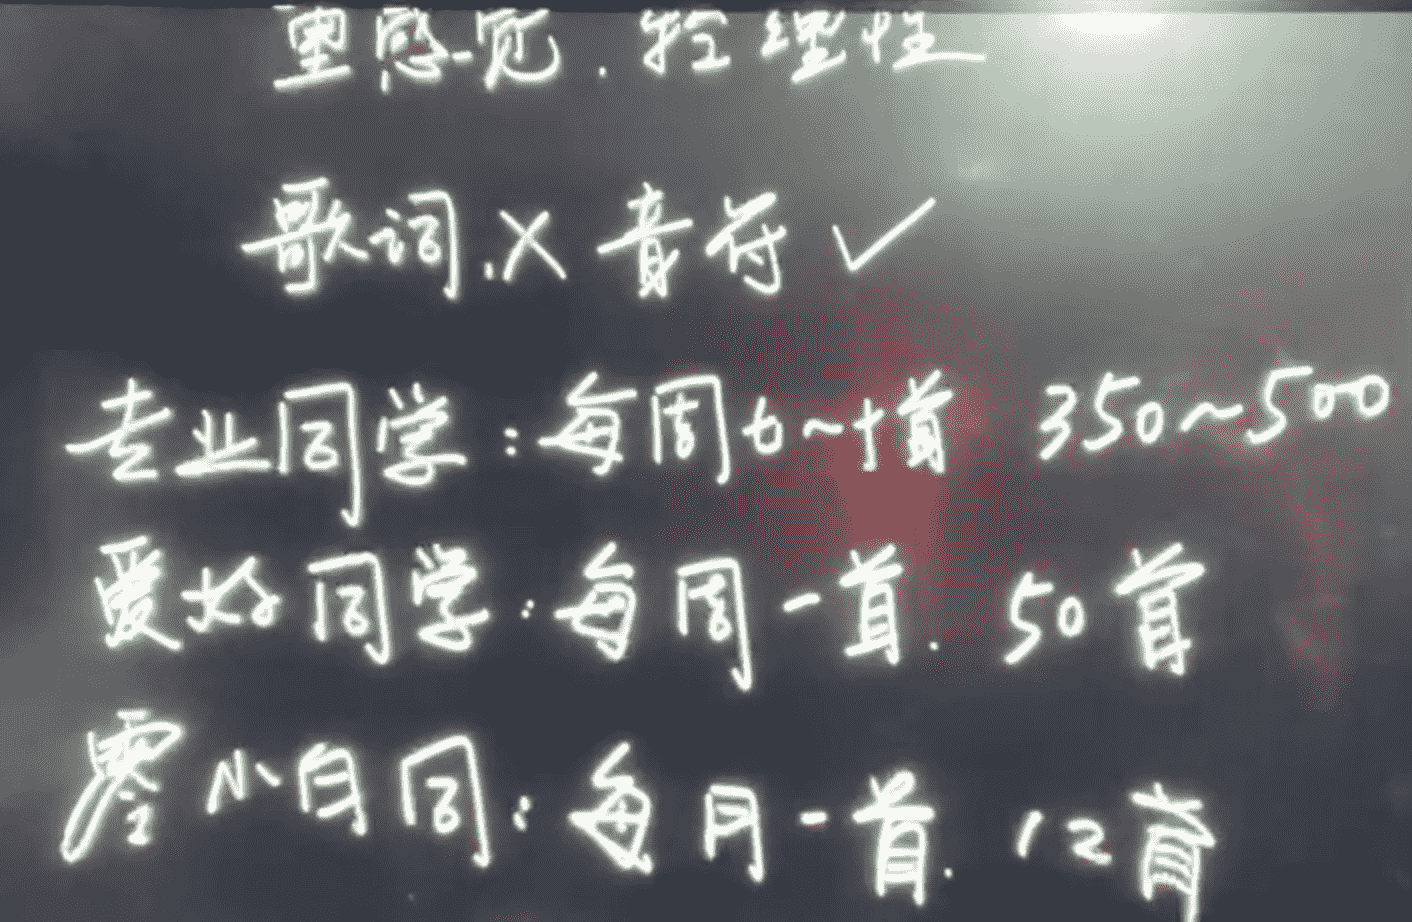 重感觉.控理性
歌词.×音符✓
专业同学:每周七~十首 350~500
爱好同学:每周一首.50首
零小白同:每月一首.12首